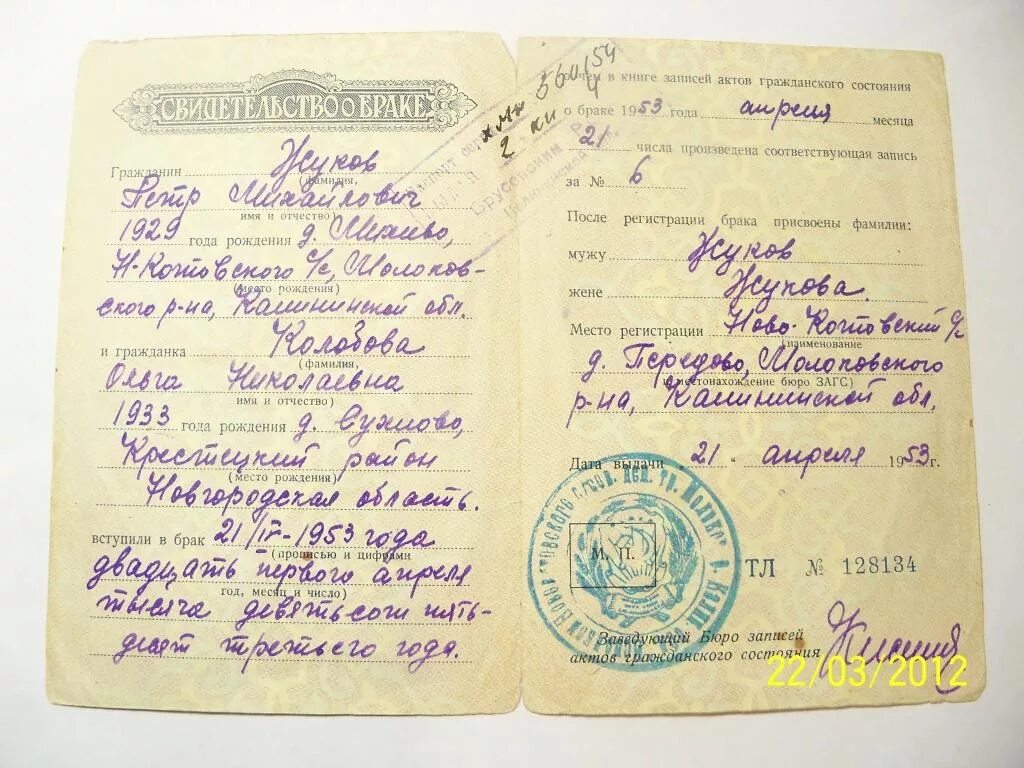 СВИДЕТЕЛЬСТВО О БРАКЕ
Гражданин Жуков
(фамилия,
Петр Михайлович
имя и отчество)
1929 года рождения д.
Н-Котовского с/с, Молоков-
(место рождения)
ского р-на, Калининской обл.
и гражданка Колобова
(фамилия,
Ольга Николаевна
имя и отчество)
1933 года рождения д.
Крестецкий район
(место рождения)
Новгородская область.
вступили в брак 21/IV-1953 года
(прописью и цифрами
двадцать первого апреля
год, месяц и число)
тысяча девятьсот пять-
десят третьего года.
о чем в книге записей актов гражданского состояния
о браке 1953 года апреля месяца
21 числа произведена соответствующая запись
за № 6
После регистрации брака присвоены фамилии:
мужу Жуков
жене Жукова.
Место регистрации Ново-Котовский с/с
(наименование
д. Передово, Молоковского
и местонахождение бюро ЗАГС)
р-на, Калининской обл.
Дата выдачи "21" апреля 1953г.
М. П.
ТЛ № 128134
Заведующий Бюро записей
актов гражданского состояния
22/03/2012